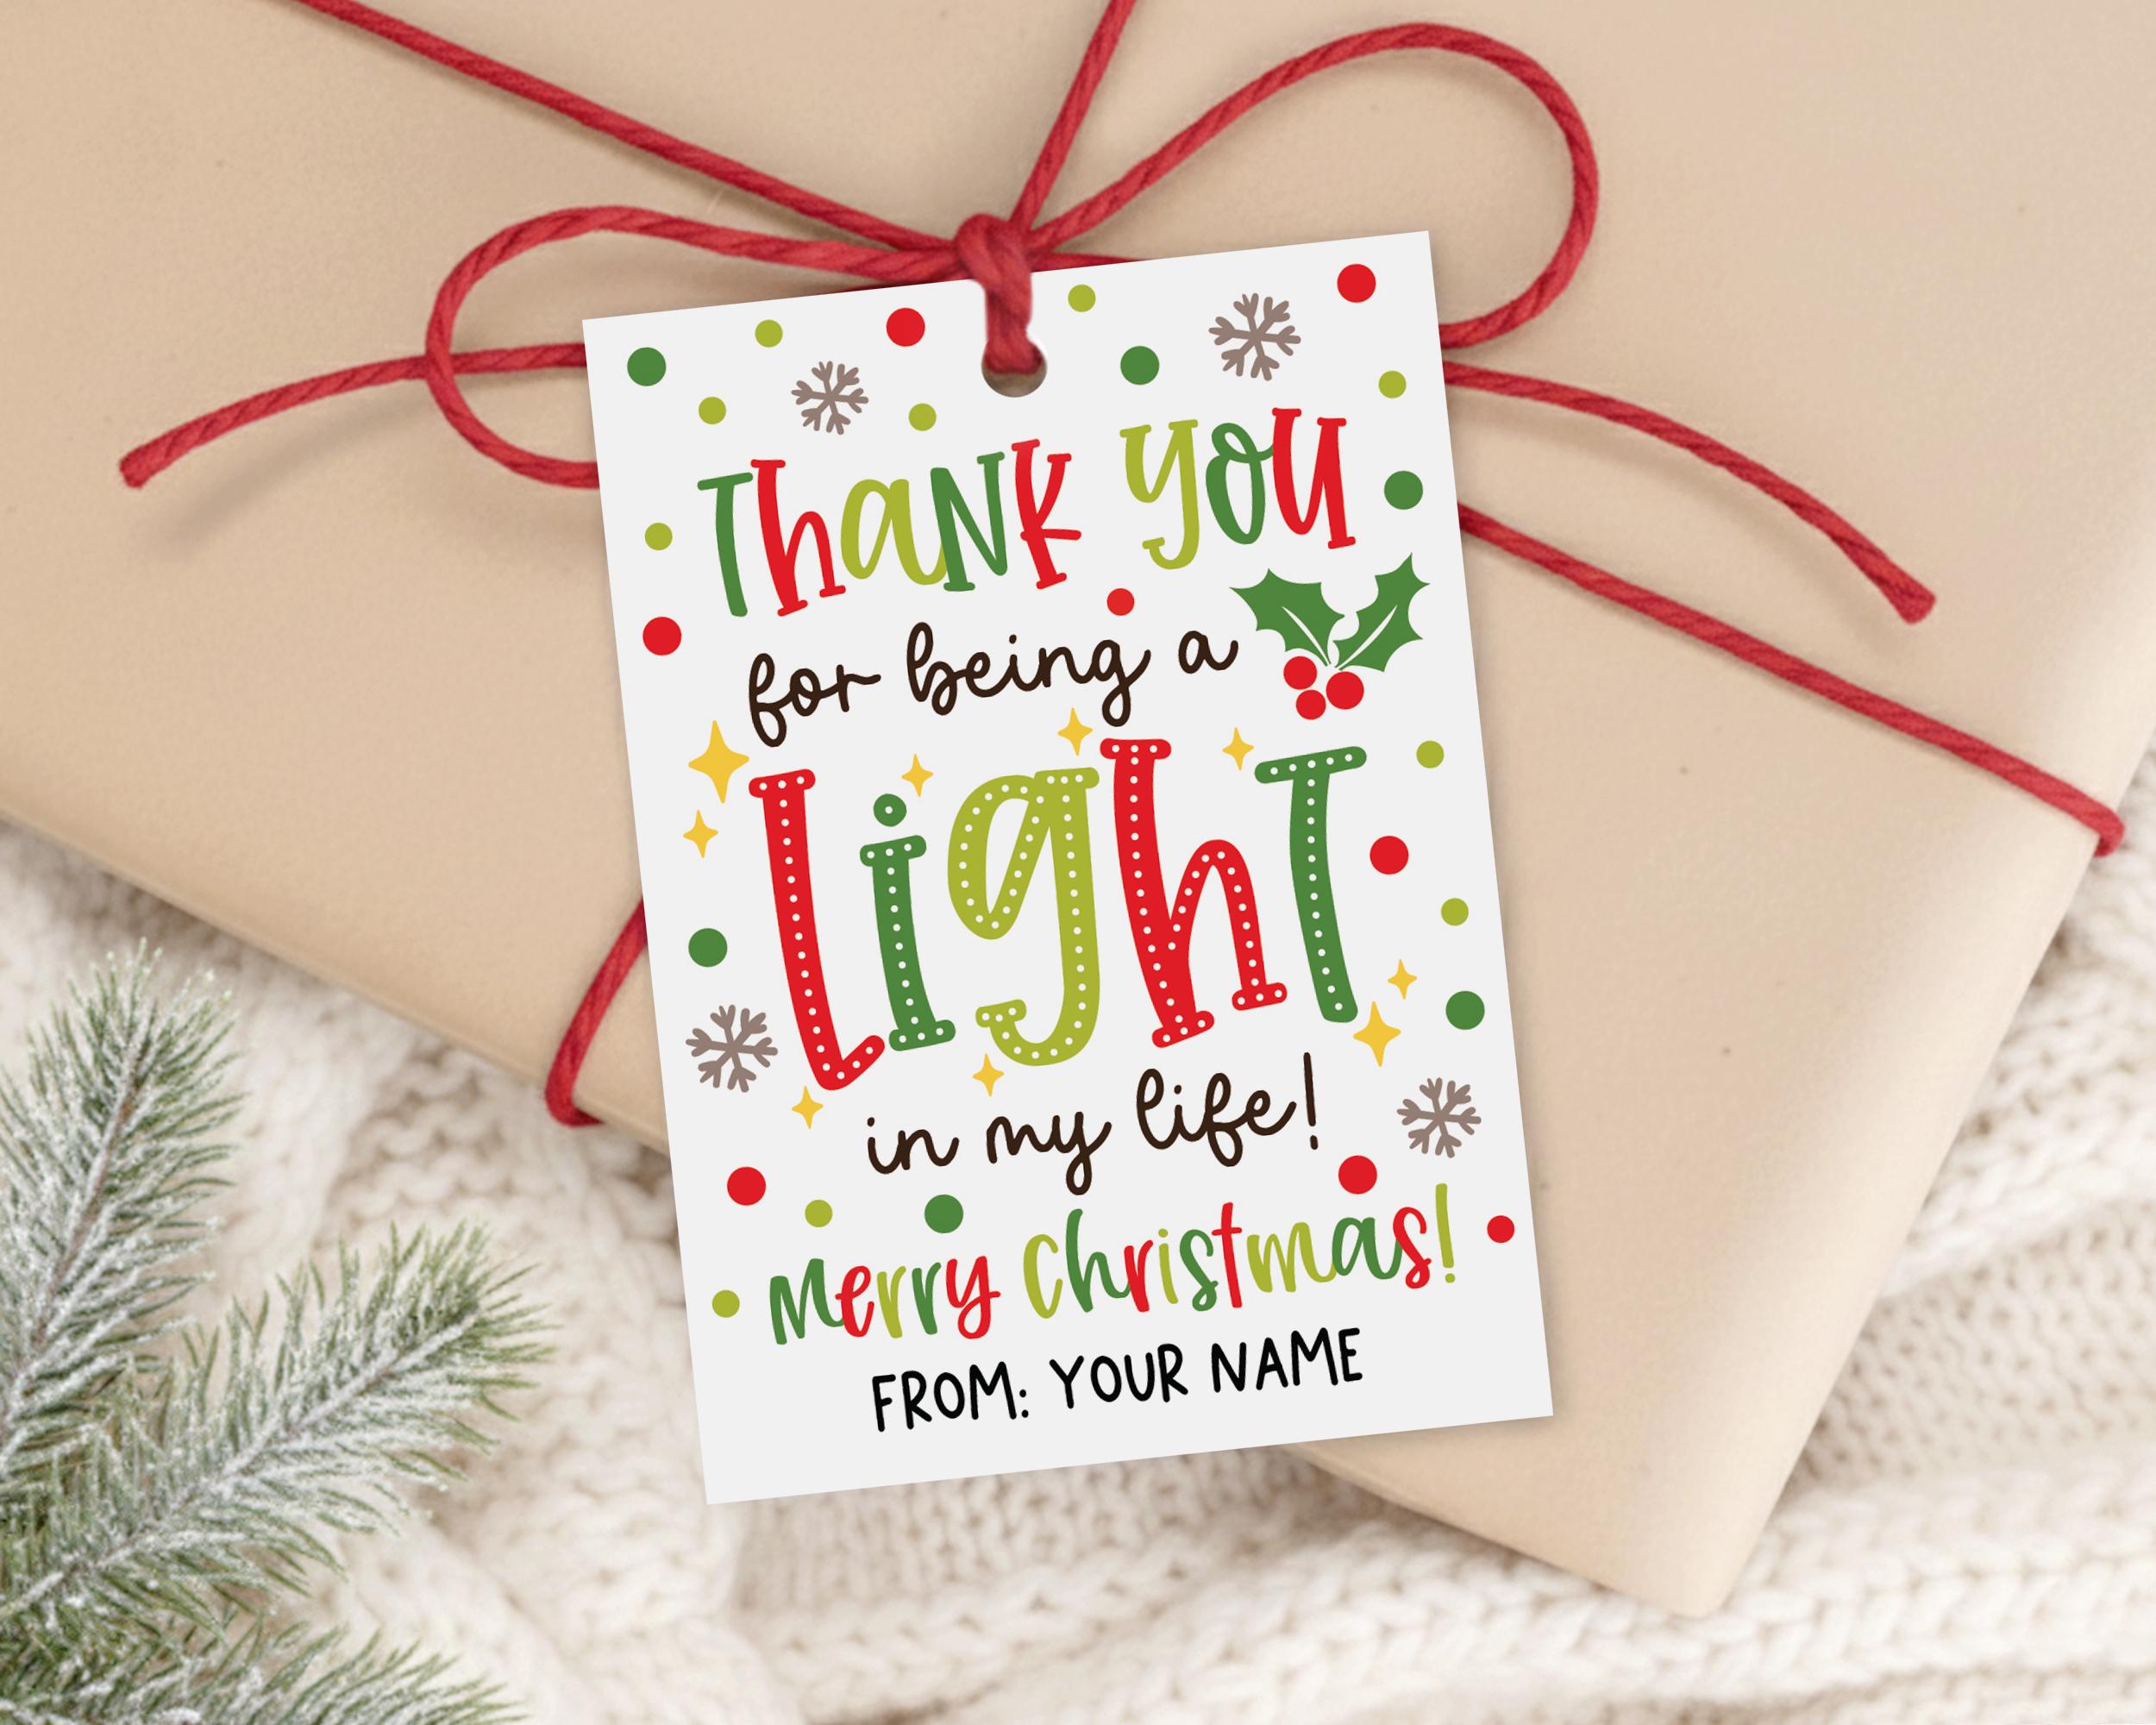 Thank you
for being a
Light
in my life!
Merry Christmas!
FROM: YOUR NAME